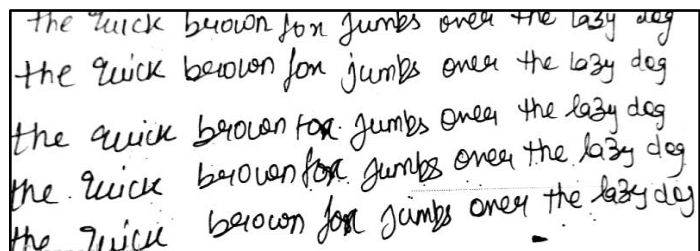 the quick brown fox jumbs over the lazy dog
the quick brown fox jumbs over the lazy dog
the quick brown fox. jumbs over the lazy dog
the quick brown fox jumbs over the lazy dog
the quick brown fox jumbs over the lazy dog